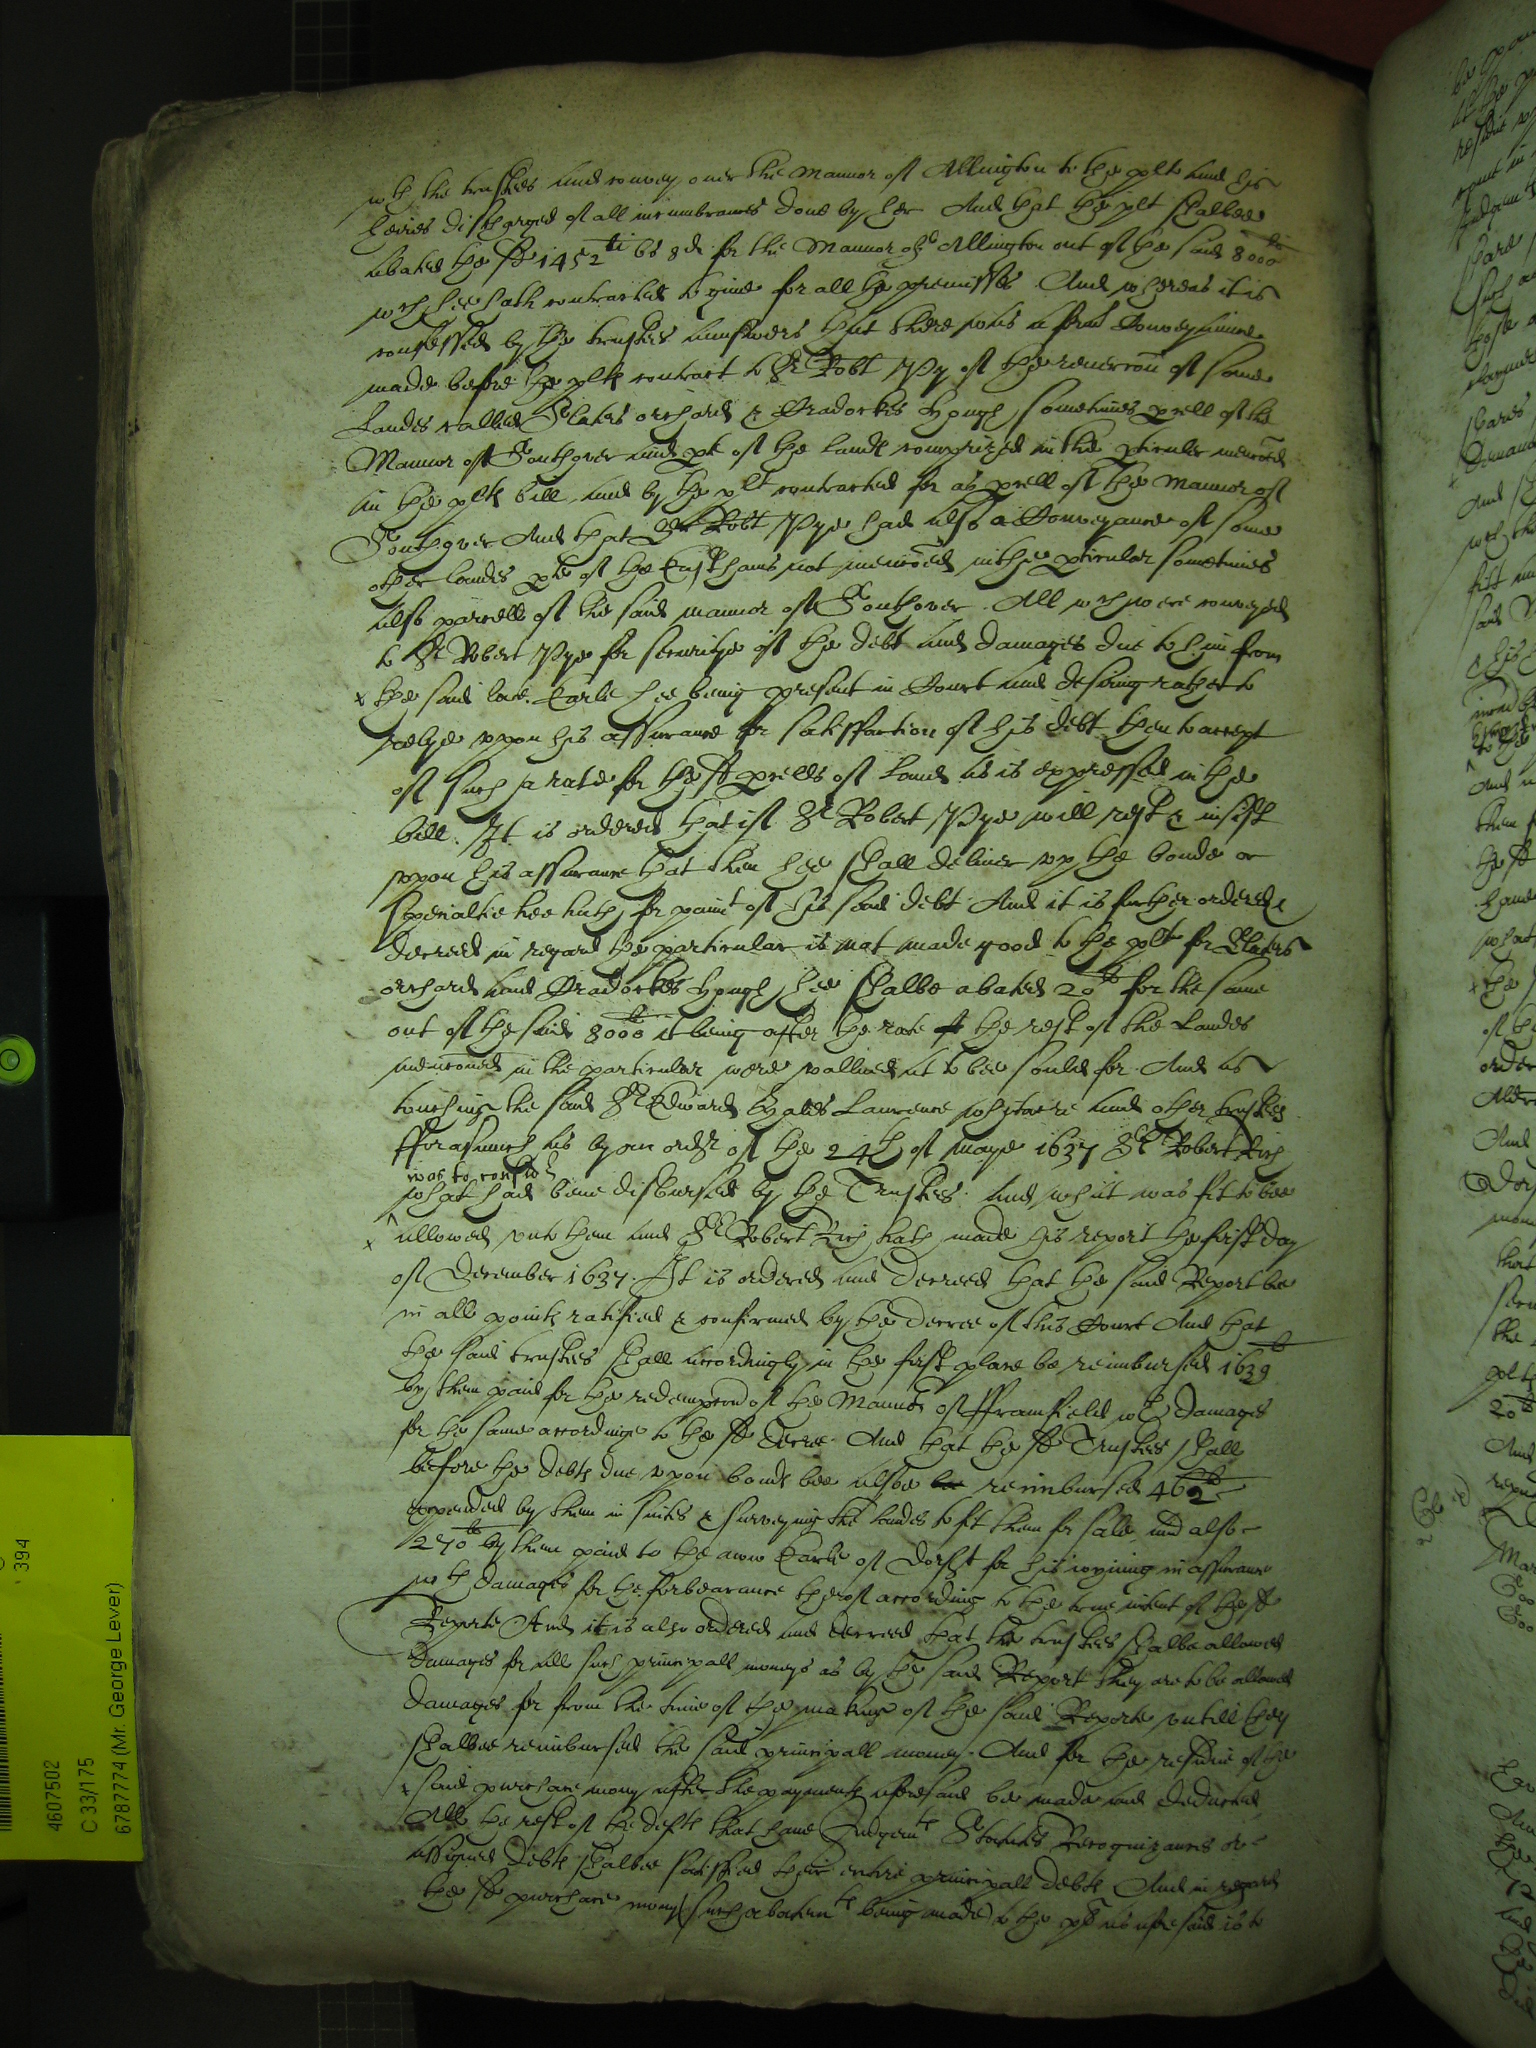 wth the trustees and convey over the Mannor of Allington to the plt and his
heires discharged of all incumbrances done by her And that the plt shalbee
abated the sd 1452li 6s 8d for the Mannor of Allington out of the said 8000li
wch hee hath contracted to give for all the premisses. And whereas it is
confessed by the trustees answeres that there was a form Conveyance
made before the plts contract to Sr Robt Pye of the revercon of some
Landes called Slaters orchard & Cradockes hough sometimes pcell of the
Mannor of Southover and pte of the lands comprized in the pticuler menconed
in the plts bill and by the plt contracted for as pcell of the Mannor of
Southover And that Sr Robt Pye had also a Conveyance of some
other landes pte of the Easthams not menconed in the pticular sometimes
also parcell of the said mannor of Southover. All wch were conveyed
to Sr Robert Pye for securitye of the debt and damages due to him from
the said late Earle hee being present in Court and desiring rather to
relye uppon his assurance for satisfaction of his debt then to accept
of such a rate for the sd pcells of land as is expressed in the
bill. It is ordered that if Sr Robert Pye will rest & insist
uppon his assurance that then hee shall deliver up the bonds or
specialtie hee hath for paimt of his said debt And it is further ordered &
decreed in regard the particular is not made good to the plt for Slaters
orchard and Cradockes hough hee shalbe abated 20li for the same
out of the said 8000li it being after the rate the rest of the Landes
menconed in the particular were vallued at to bee sould for. And as
touching the said Sr Edward Bales Laurence Whitacre and other trustees
fforasmuch as by an order of the 24th of maye 1637 Sr Robert Rich
was to consider
what had bene disbursed by the Trustees and what was fit to bee
allowed unto them and Sr Robert Rich hath made his report the first day
of December 1637. It is ordered and decreed that the said Report bee
in all points ratified & confirmed by the decree of this Court And that
the said trustees shall accordingly in the first place be reimbursed 1639li
by them paid for the redempcon of the Mannor of fframfield wth damages
for the same accordinge to the sd decree. And that the sd Trustees shall
before the debts due upon bonds bee alsoe reimbursed 462li
expended by them in suites & surveying the landes to fit them for sale and also
270li by them paid to the now Earle of Dorst for his ioyning in assurance
wth damages for the forbearance therof according to the true intent of the sd
Reporte And it is also ordered and decreed that the trustees shalbe allowed
damages for all such principall moneys as by the said Report they are to be allowed
damages for from the time of the making of the said Reporte untill they
shalbee reimbursed the said principall money. And for the residue of the
said purchase mony after the payments aforesaid be made and deducted
All the rest of the defts that have Judgemts Statutes Recognizances or
assigned debts shalbee satisfied their entire principall debts And in regard
the sd purchase mony (such abatemts being made) to the plt as aforesaid is to
394
4607502
C 33/175
6787774 (Mr. George Lever)